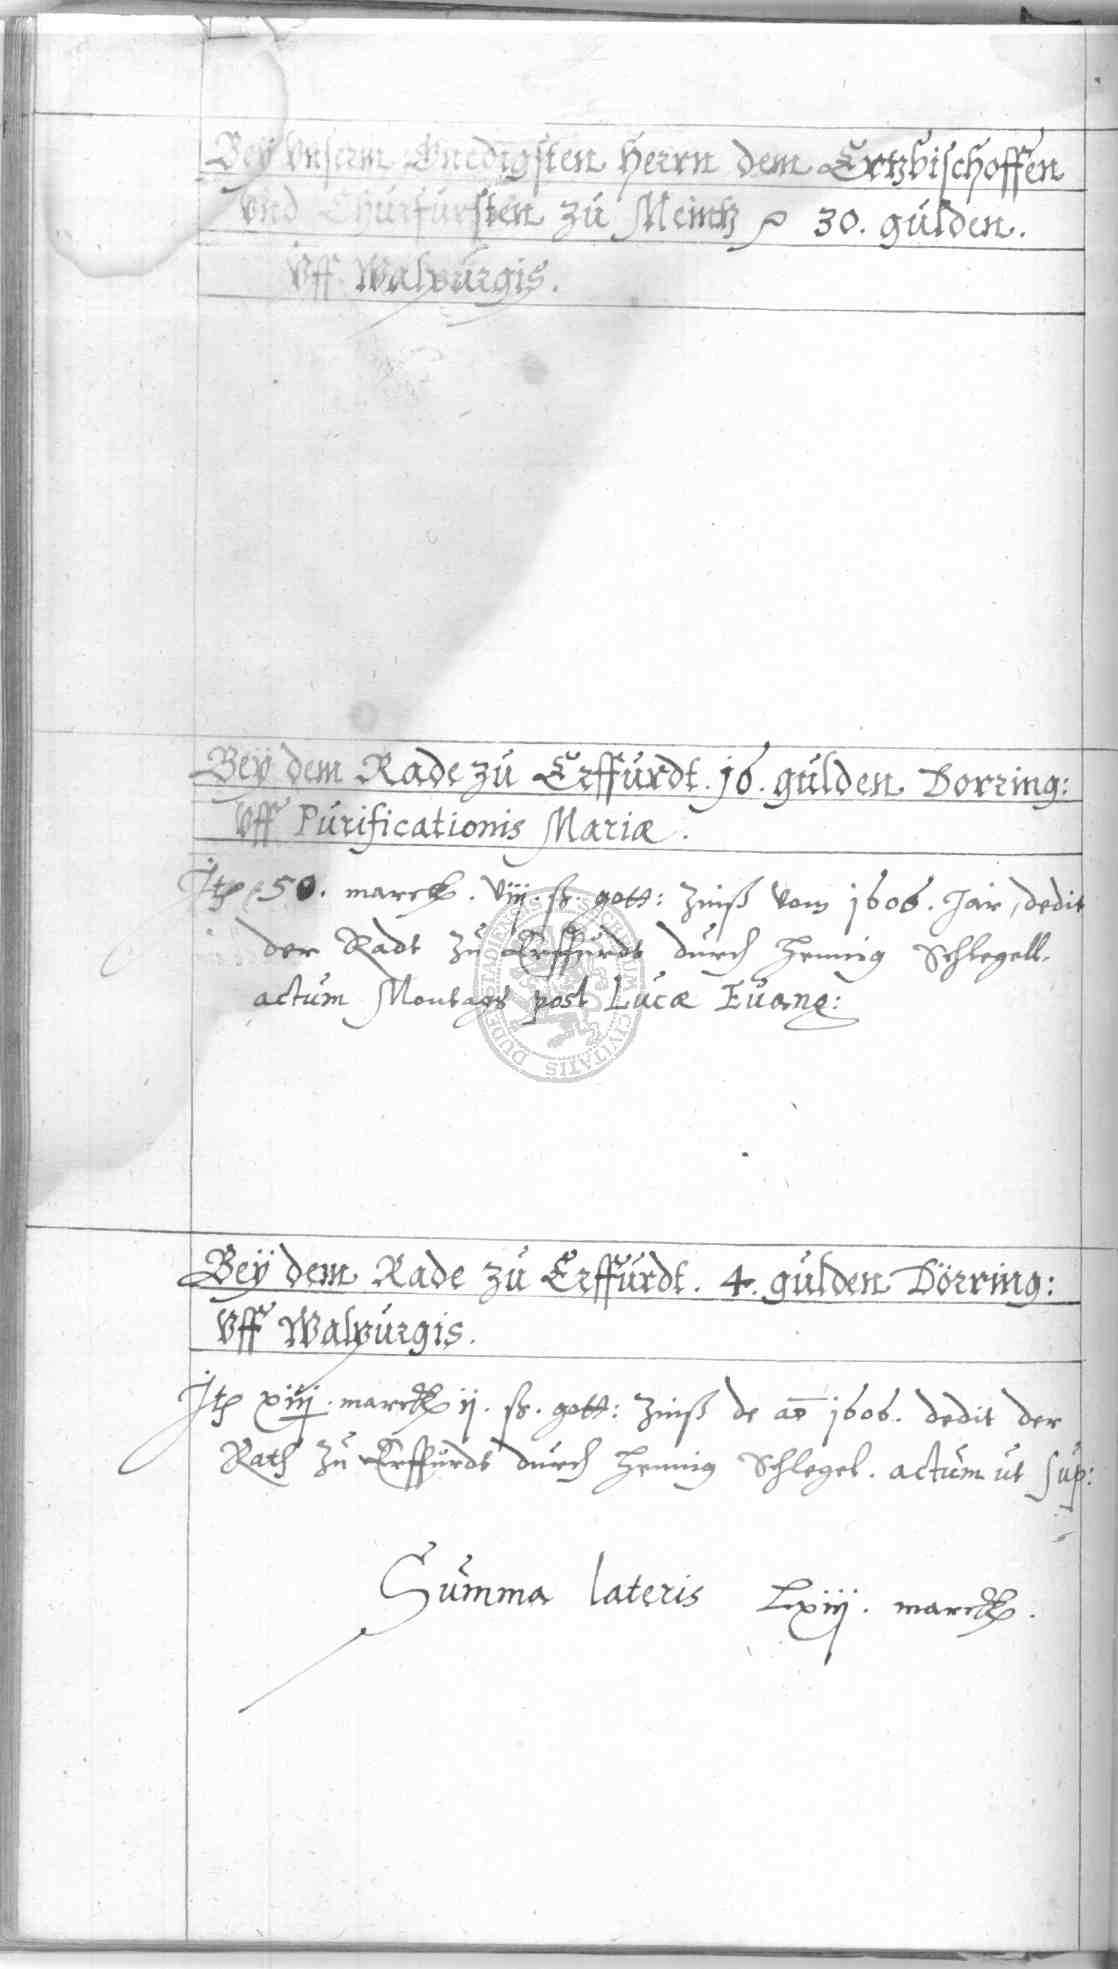 Bey vnserm Gnedigsten Herrn dem Ertzbischoffen
vnd Churfürsten zu Meintz 30. gulden.
Vff Walpurgis.
Beÿ dem Rade zu Erffurdt. 16. gulden Dorring:
Vff Purificationis Mariæ.
Itē 50. marck. viij. ß. gott: Zinß vom 1606. Jar, dedit
der Radt zu Erffurdt durch Hennig Schlegell.
actum Montags post Lucæ Euang:
Beÿ dem Rade zu Erffurdt. 4. gulden Dörring:
Vff Walpurgis.
Itē xiij. marck ij. ß. gott: Zinß de ao 1606. dedit der
Rath zu Erffurdt durch Hennig Schlegel. actum ut sup:
Summa lateris Lxiij. marck.